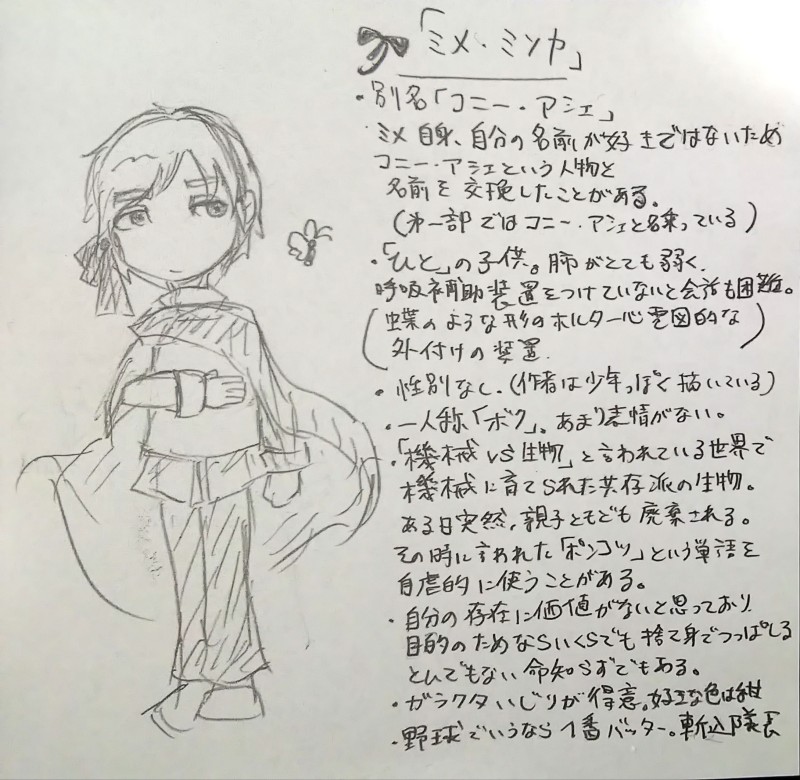 「ミメ・ミソカ」
・別名「コニー・アシェ」
ミメ自身、自分の名前が好きではないため
コニー・アシェという人物と
名前を交換したことがある。
(第一部ではコニー・アシェと名乗っている)
・「ひと」の子供。肺がとても弱く、
呼吸補助装置をつけていないと会話も困難。
(蝶のような形のホルター心電図的な
外付けの装置.)
・性別なし.(作者は少年っぽく描いている)
・一人称「ボク」、あまり表情がない。
・「機械vs生物」と言われている世界で
機械に育てられた共存派の生物。
ある日突然、親子ともども廃棄される。
その時に言われた「ポンコツ」という単語を
自虐的に使うことがある。
・自分の存在に価値がないと思っており
目的のためならいくらでも捨て身でつっぱしる
とんでもない命知らずでもある。
・ガラクタいじりが得意。好きな色は紺
・野球でいうなら1番バッター。斬込隊長